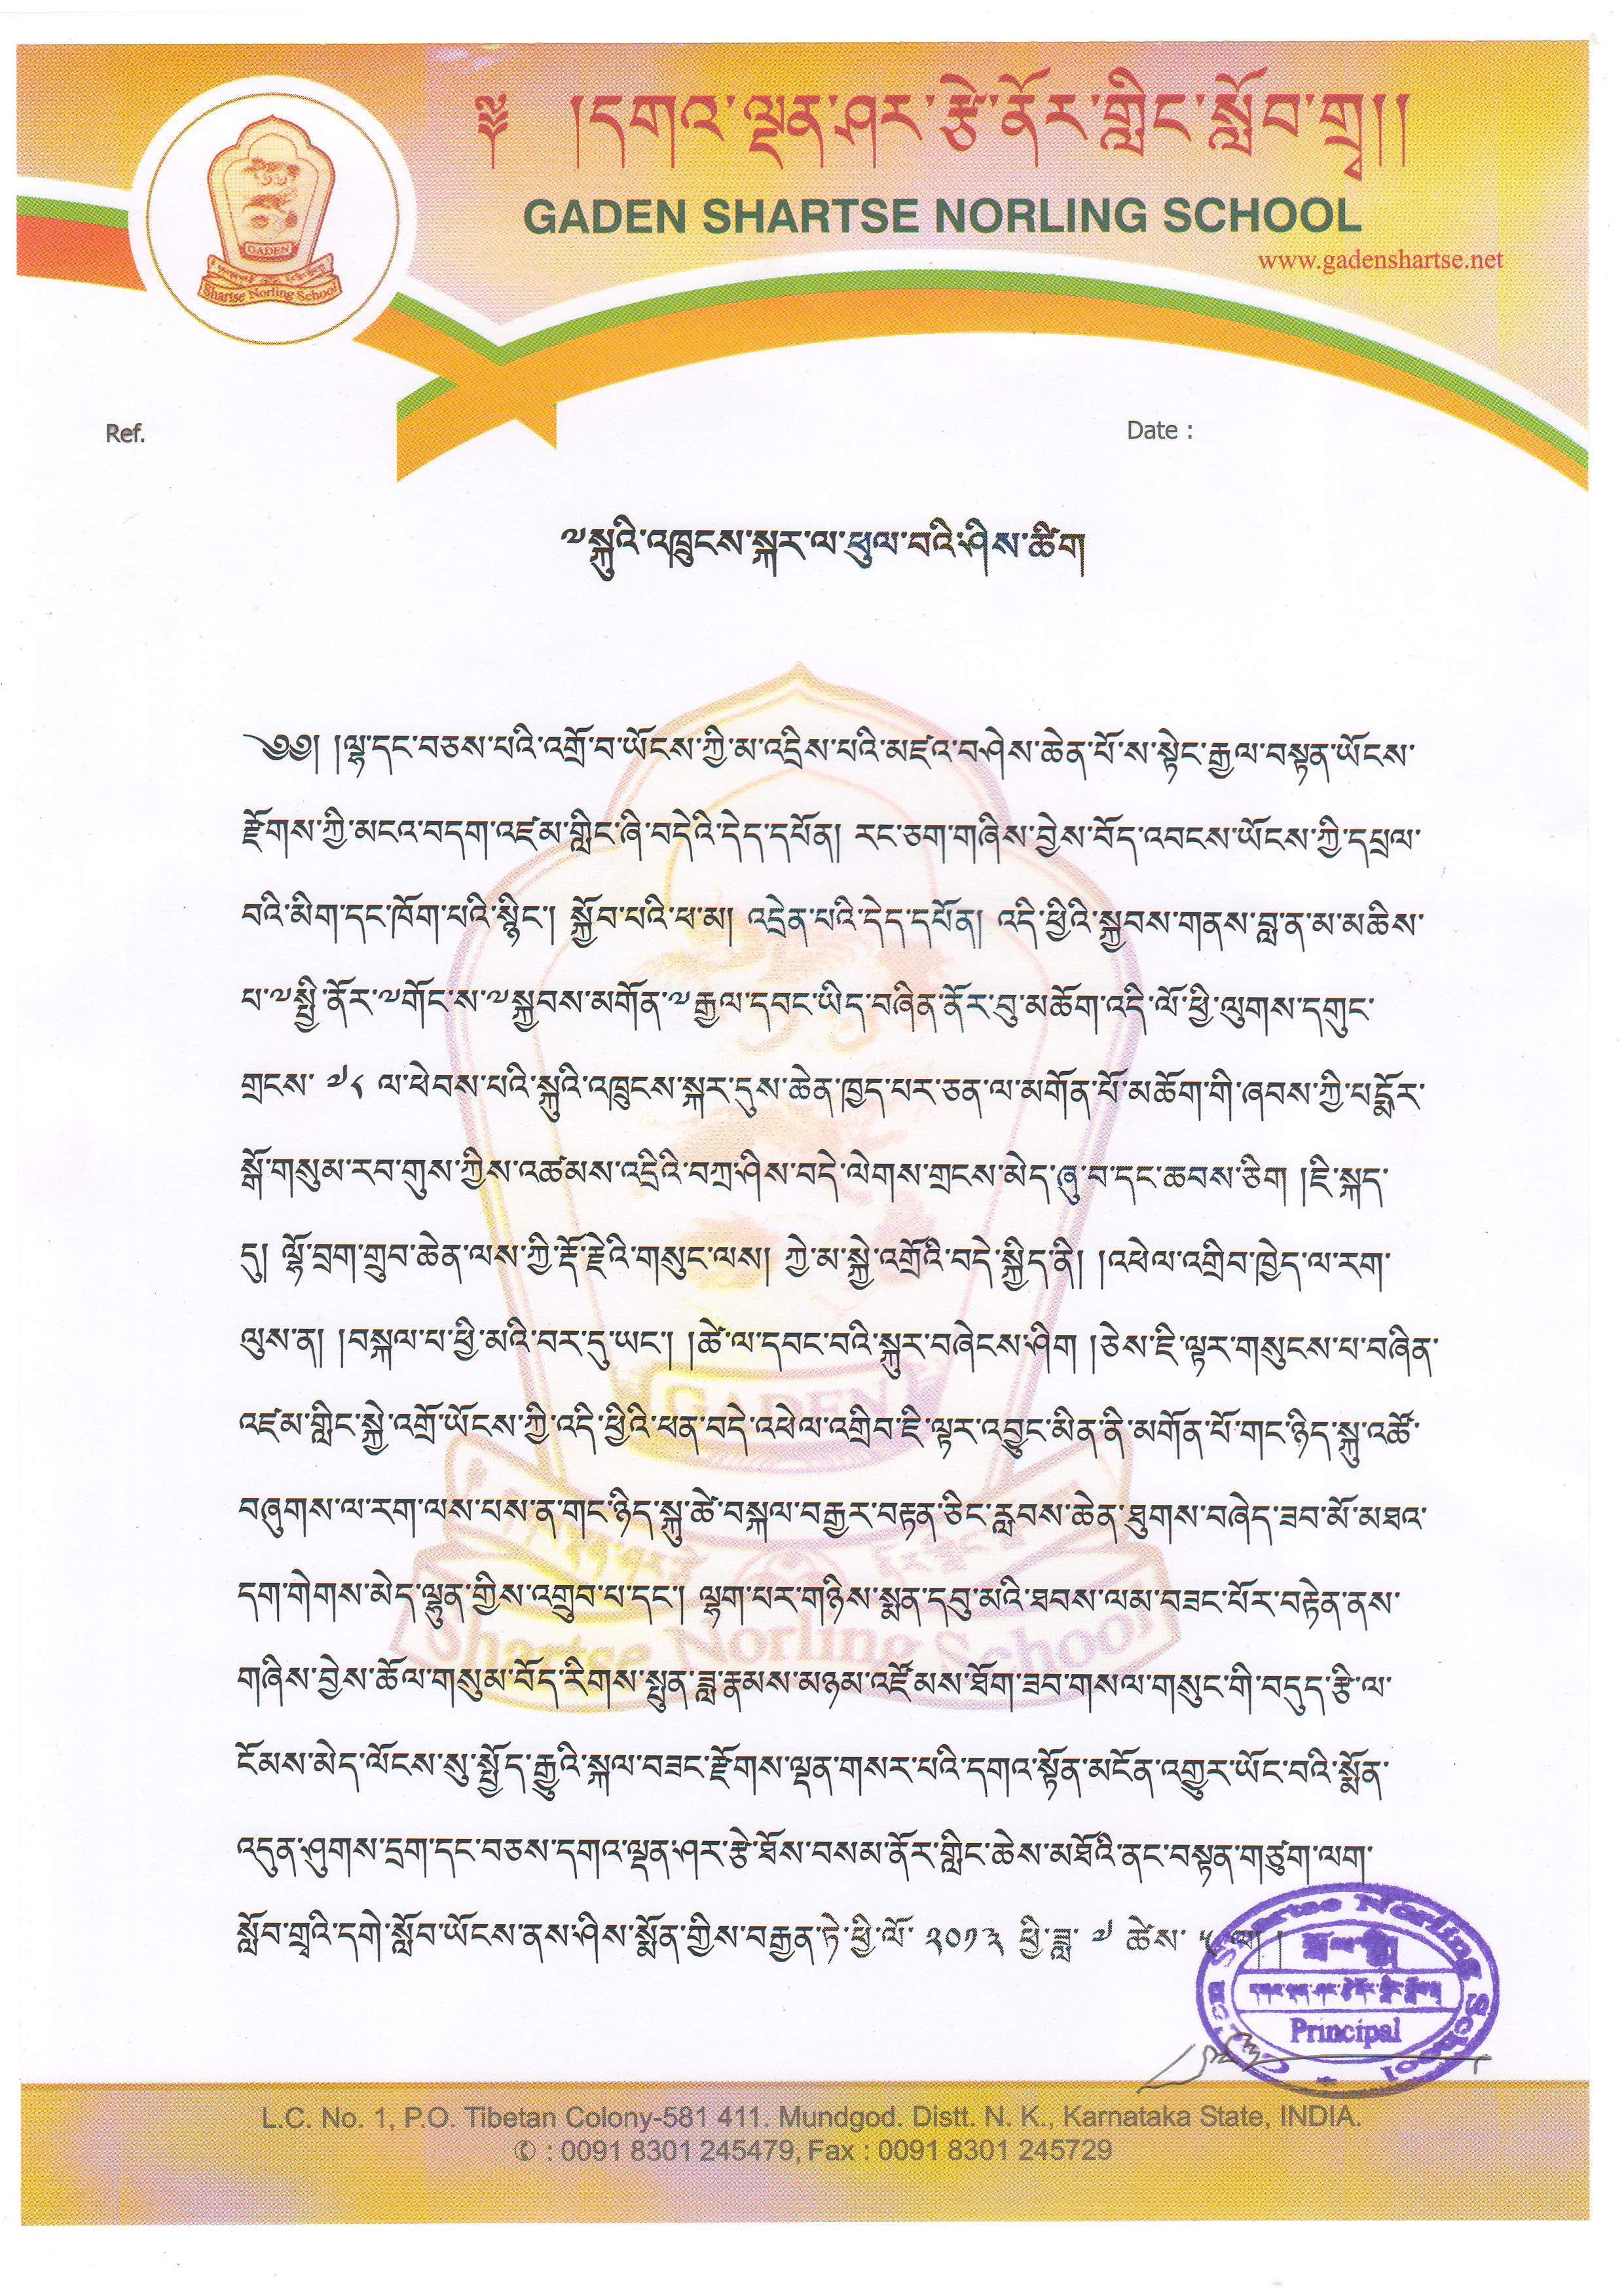 ༈ །དགའ་ལྡན་ཤར་རྩེ་ནོར་གླིང་སློབ་གྲྭ།།
GADEN SHARTSE NORLING SCHOOL
www.gadenshartse.net
GADEN
Shartse Norling School
Ref.
Date :
༧སྐུའི་འཁྲུངས་སྐར་ལ་ཕུལ་བའི་ཤིས་ཚིག
༄༅། །ལྷ་དང་བཅས་པའི་འགྲོ་བ་ཡོངས་ཀྱི་མ་འདྲིས་པའི་མཛའ་བཤེས་ཆེན་པོ་ས་སྟེང་རྒྱལ་བསྟན་ཡོངས་
རྫོགས་ཀྱི་མངའ་བདག་འཛམ་གླིང་ཞི་བདེའི་དེད་དཔོན། རང་ཅག་གཞིས་བྱེས་བོད་འབངས་ཡོངས་ཀྱི་དཔྲལ་
བའི་མིག་དང་ཁོག་པའི་སྙིང་། སྐྱོབ་པའི་ཕ་མ། འདྲེན་པའི་དེད་དཔོན། འདི་ཕྱིའི་སྐྱབས་གནས་བླ་ན་མ་མཆིས་
པ་༧སྤྱི་ནོར་༧གོང་ས་༧སྐྱབས་མགོན་༧རྒྱལ་དབང་ཡིད་བཞིན་ནོར་བུ་མཆོག་འདི་ལོ་ཕྱི་ལུགས་དགུང་
གྲངས་ ༧༨ ལ་ཕེབས་པའི་སྐུའི་འཁྲུངས་སྐར་དུས་ཆེན་ཁྱད་པར་ཅན་ལ་མགོན་པོ་མཆོག་གི་ཞབས་ཀྱི་པདྨོར་
སྒོ་གསུམ་རབ་གུས་ཀྱིས་འཚམས་འདྲིའི་བཀྲ་ཤིས་བདེ་ལེགས་གྲངས་མེད་ཞུ་བ་དང་ཆབས་ཅིག །ཇི་སྐད་
དུ། ལྷོ་བྲག་གྲུབ་ཆེན་ལས་ཀྱི་རྡོ་རྗེའི་གསུང་ལས། ཀྱེ་མ་སྐྱེ་འགྲོའི་བདེ་སྐྱིད་ནི། །འཕེལ་འགྲིབ་ཁྱེད་ལ་རག་
ལུས་ན། །བསྐལ་པ་ཕྱི་མའི་བར་དུ་ཡང་། །ཚེ་ལ་དབང་བའི་སྐུར་བཞེངས་ཤིག །ཅེས་ཇི་ལྟར་གསུངས་པ་བཞིན་
འཛམ་གླིང་སྐྱེ་འགྲོ་ཡོངས་ཀྱི་འདི་ཕྱིའི་ཕན་བདེ་འཕེལ་འགྲིབ་ཇི་ལྟར་འབྱུང་མིན་ནི་མགོན་པོ་གང་ཉིད་སྐུ་འཚོ་
བཞུགས་ལ་རག་ལས་པས་ན་གང་ཉིད་སྐུ་ཚེ་བསྐལ་བརྒྱར་བརྟན་ཅིང་རླབས་ཆེན་ཐུགས་བཞེད་ཟབ་མོ་མཐའ་
དག་གེགས་མེད་ལྷུན་གྱིས་འགྲུབ་པ་དང་། ལྷག་པར་གཉིས་སྨན་དབུ་མའི་ཐབས་ལམ་བཟང་པོར་བརྟེན་ནས་
གཞིས་བྱེས་ཆོལ་གསུམ་བོད་རིགས་སྤུན་ཟླ་རྣམས་མཉམ་འཛོམས་ཐོག་ཟབ་གསལ་གསུང་གི་བདུད་རྩི་ལ་
ངོམས་མེད་ལོངས་སུ་སྤྱོད་རྒྱུའི་སྐལ་བཟང་རྫོགས་ལྡན་གསར་པའི་དགའ་སྟོན་མངོན་འགྱུར་ཡོང་བའི་སྨོན་
འདུན་ཤུགས་དྲག་དང་བཅས་དགའ་ལྡན་ཤར་རྩེ་ཐོས་བསམ་ནོར་གླིང་ཆེས་མཐོའི་ནང་བསྟན་གཙུག་ལག་
སློབ་གྲྭའི་དགེ་སློབ་ཡོངས་ནས་ཤིས་སྨོན་གྱིས་བརྒྱན་ཏེ་ཕྱི་ལོ་ ༢༠༡༣ ཕྱི་ཟླ་ ༧ ཚེས་ ༥ ལ། །
Principal
L.C. No. 1, P.O. Tibetan Colony-581 411. Mundgod. Distt. N. K., Karnataka State, INDIA.
✆ : 0091 8301 245479, Fax : 0091 8301 245729